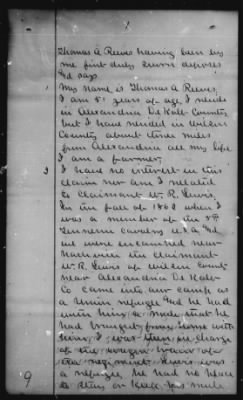 1
Thomas A Reeves having been by
me first duly sworn deposes
and says
My name is Thomas A Reeves,
I am 51 years of age, I reside
in Alexandria De Kalb County
but I have resided in Wilson
County about three miles
from Alexandria all my life
I am a farmer,
I have no interest in this
claim nor am I related
to Claimant W. R. Lewis.
In the fall of 1862 when I
was a member of the 5th
Tennessee Cavalry U.S.A. and
we were encamped near
Nashville the claimant
W. R. Lewis of Wilson County
near Alexandria De Kalb
Co came into our camp as
a Union refugee and he had
with him a mule, that he
had brought from home with
him, I was then in charge
of the wagon train of
the regiment. Lewis was
a refugee, he had no place
to stay or keep his mule
9